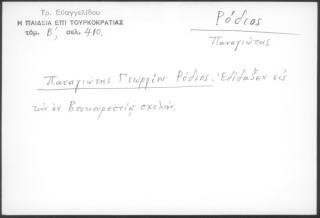 Τρ. Ευαγγελίδου
Η ΠΑΙΔΕΙΑ ΕΠΙ ΤΟΥΡΚΟΚΡΑΤΙΑΣ
τόμ. Β', σελ. 410.
Ρόδιος
Παναγιώτης
Παναγιώτης Γεωργίου Ρόδιος. Ἐδίδαξεν εἰς
τὴν ἐν Βουκουρεστίῳ σχολήν.